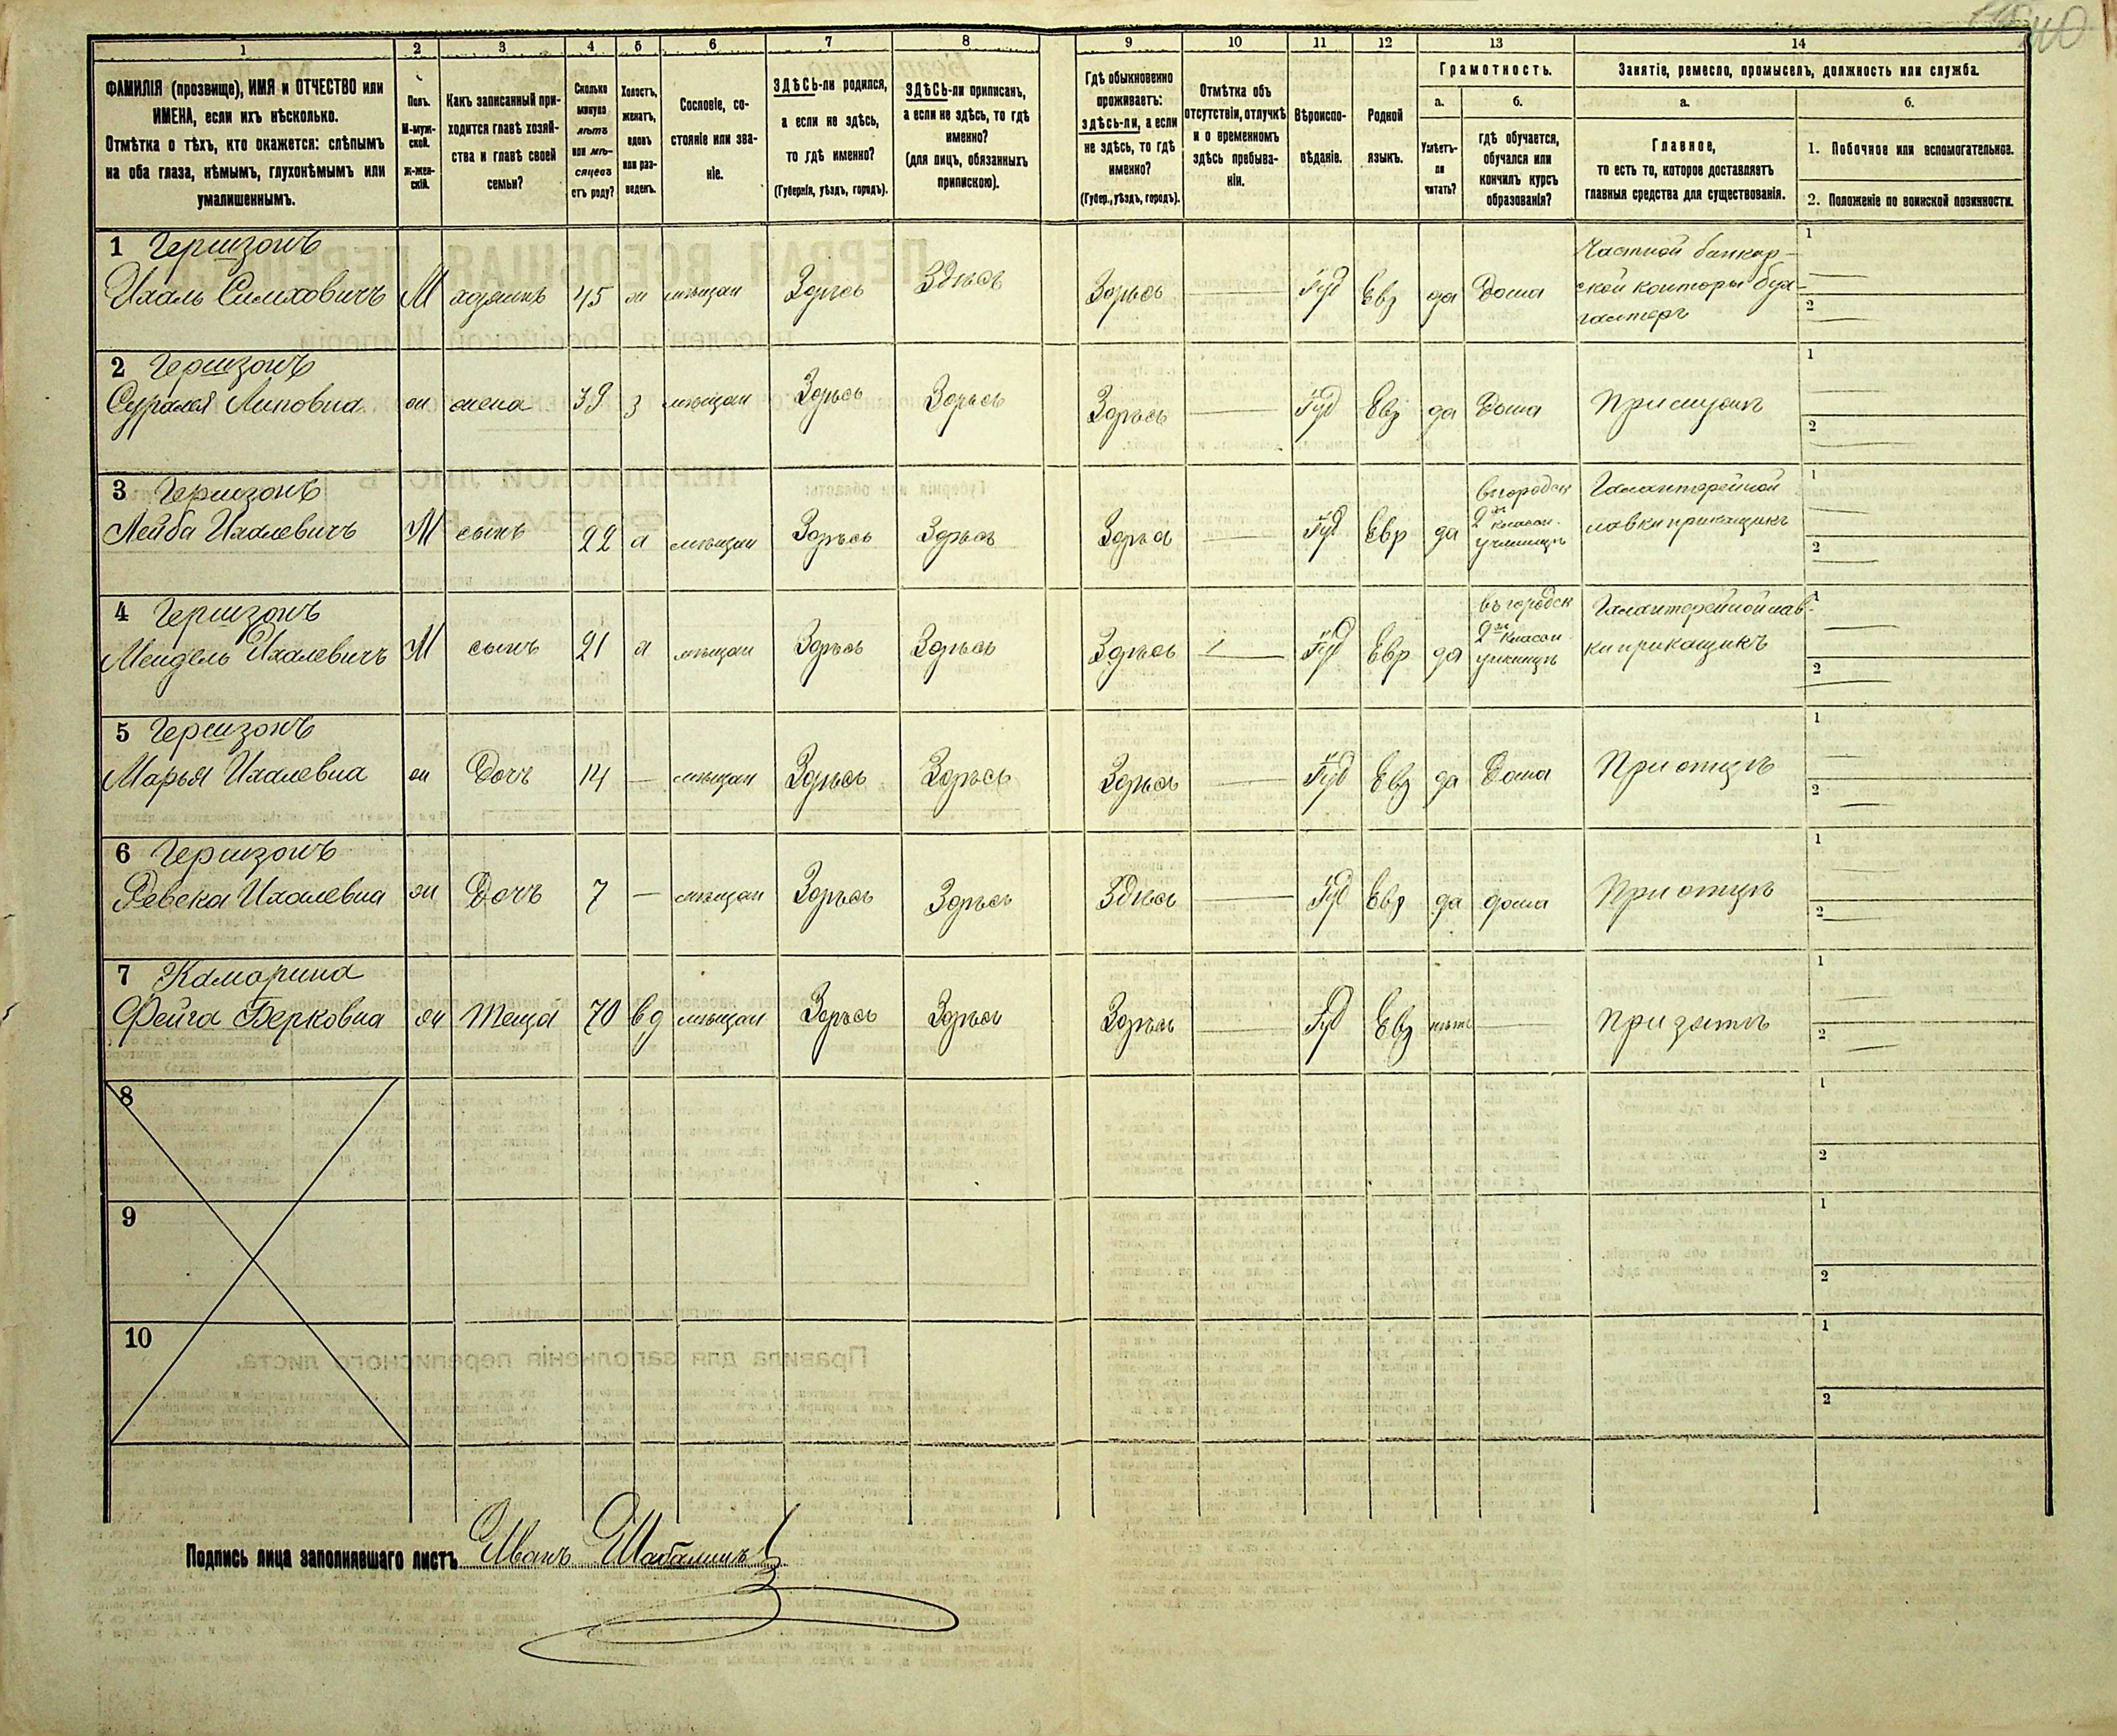 1 2 3 4 5 6 7 8 9 10 11 12 13 14
ФАМИЛІЯ (прозвище), ИМЯ и ОТЧЕСТВО или
ИМЕНА, если ихъ нѣсколько.
Отмѣтка о тѣхъ, кто окажется: слѣпымъ
на оба глаза, нѣмымъ, глухонѣмымъ или
умалишеннымъ.
Полъ.
М-муж-
ской.
ж-жен-
скій.
Какъ записанный при-
ходится главѣ хозяй-
ства и главѣ своей
семьи?
Сколько
минуло
лѣтъ
или мѣ-
сяцевъ
отъ роду?
Холостъ,
женатъ,
вдовъ
или раз-
веденъ.
Сословіе, со-
стояніе или зва-
ніе.
ЗДѢСЬ-ли родился,
а если не здѣсь,
то гдѣ именно?
(Губернія, уѣздъ, городъ).
ЗДѢСЬ-ли приписанъ,
а если не здѣсь, то гдѣ
именно?
(для лицъ, обязанныхъ
припискою).
Гдѣ обыкновенно
проживаетъ:
здѣсь-ли, а если
не здѣсь, то гдѣ
именно?
(Губер., уѣздъ, городъ).
Отмѣтка объ
отсутствіи, отлучкѣ
и о временномъ
здѣсь пребыва-
ніи.
Вѣроиспо-
вѣданіе.
Родной
языкъ.
Грамотность.
а.
Умѣетъ-
ли
читать?
б.
гдѣ обучается,
обучался или
кончилъ курсъ
образованія?
Занятіе, ремесло, промыселъ, должность или служба.
а.
Главное,
то есть то, которое доставляетъ
главныя средства для существованія.
б.
1. Побочное или вспомогательное.
2. Положеніе по воинской повинности.
1 Гершзонъ
Ихаль Симховичъ М хозяинъ 45 ж мѣщан Здѣсь Здѣсь Здѣсь — Іуд Евр да Дома
Частной банкир-
ской конторы бух-
галтеръ
1 —
2 —
2 Гершзонъ
Суралея Липовна ж жена 39 з мѣщан Здѣсь Здѣсь Здѣсь — Іуд Евр да Дома При мужѣ
1 —
2 —
3 Гершзонъ
Лейба Ихалевичъ М сынъ 22 х мѣщан Здѣсь Здѣсь Здѣсь — Іуд Евр да
въ городск
2хъ класон.
училищѣ
Галантерейной
лавки прикащикъ
1 —
2 —
4 Гершзонъ
Мендель Ихалевичъ М сынъ 21 х мѣщан Здѣсь Здѣсь Здѣсь — Іуд Евр да
въ городск
2хъ класон.
училищѣ
Галантерейной лав-
ки прикащикъ
1 —
2 —
5 Гершзонъ
Марья Ихалевна ж Дочъ 14 — мѣщан Здѣсь Здѣсь Здѣсь — Іуд Евр да Дома При отцѣ
1 —
2 —
6 Гершзонъ
Ревека Ихалевна ж Дочъ 7 — мѣщан Здѣсь Здѣсь Здѣсь — Іуд Евр да дома При отцѣ
1 —
2 —
7 Камарина
Фейга Берковна ж Теща 70 вд мѣщан Здѣсь Здѣсь Здѣсь — Іуд Евр нѣтъ — При зятѣ
1 —
2 —
8
1
2
9
1
2
10
1
2
Подпись лица заполнявшаго листъ Иванъ Шабалинъ